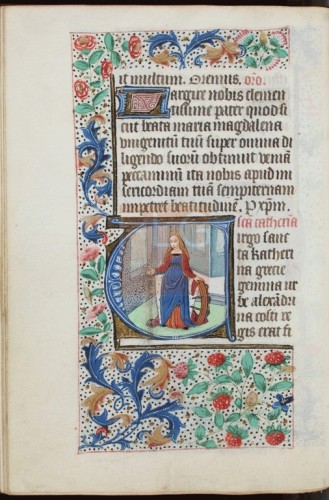 it multum. Oremus. or̃o.
Largire nobis clemen
tissime pater quod si
cut beata maria magdalena
unigenitū tuū super omnia di
ligendo suorū obtinuit veniā
peccaminū ita nobis apud mi
sericordiam tuā sempiternam
impetret beatitudinē. P xp̄m.
Sca catherīa
Virgo sanc
ta katheri
na grecie
gemma ur
be alexādri
na costi re
gis erat fi